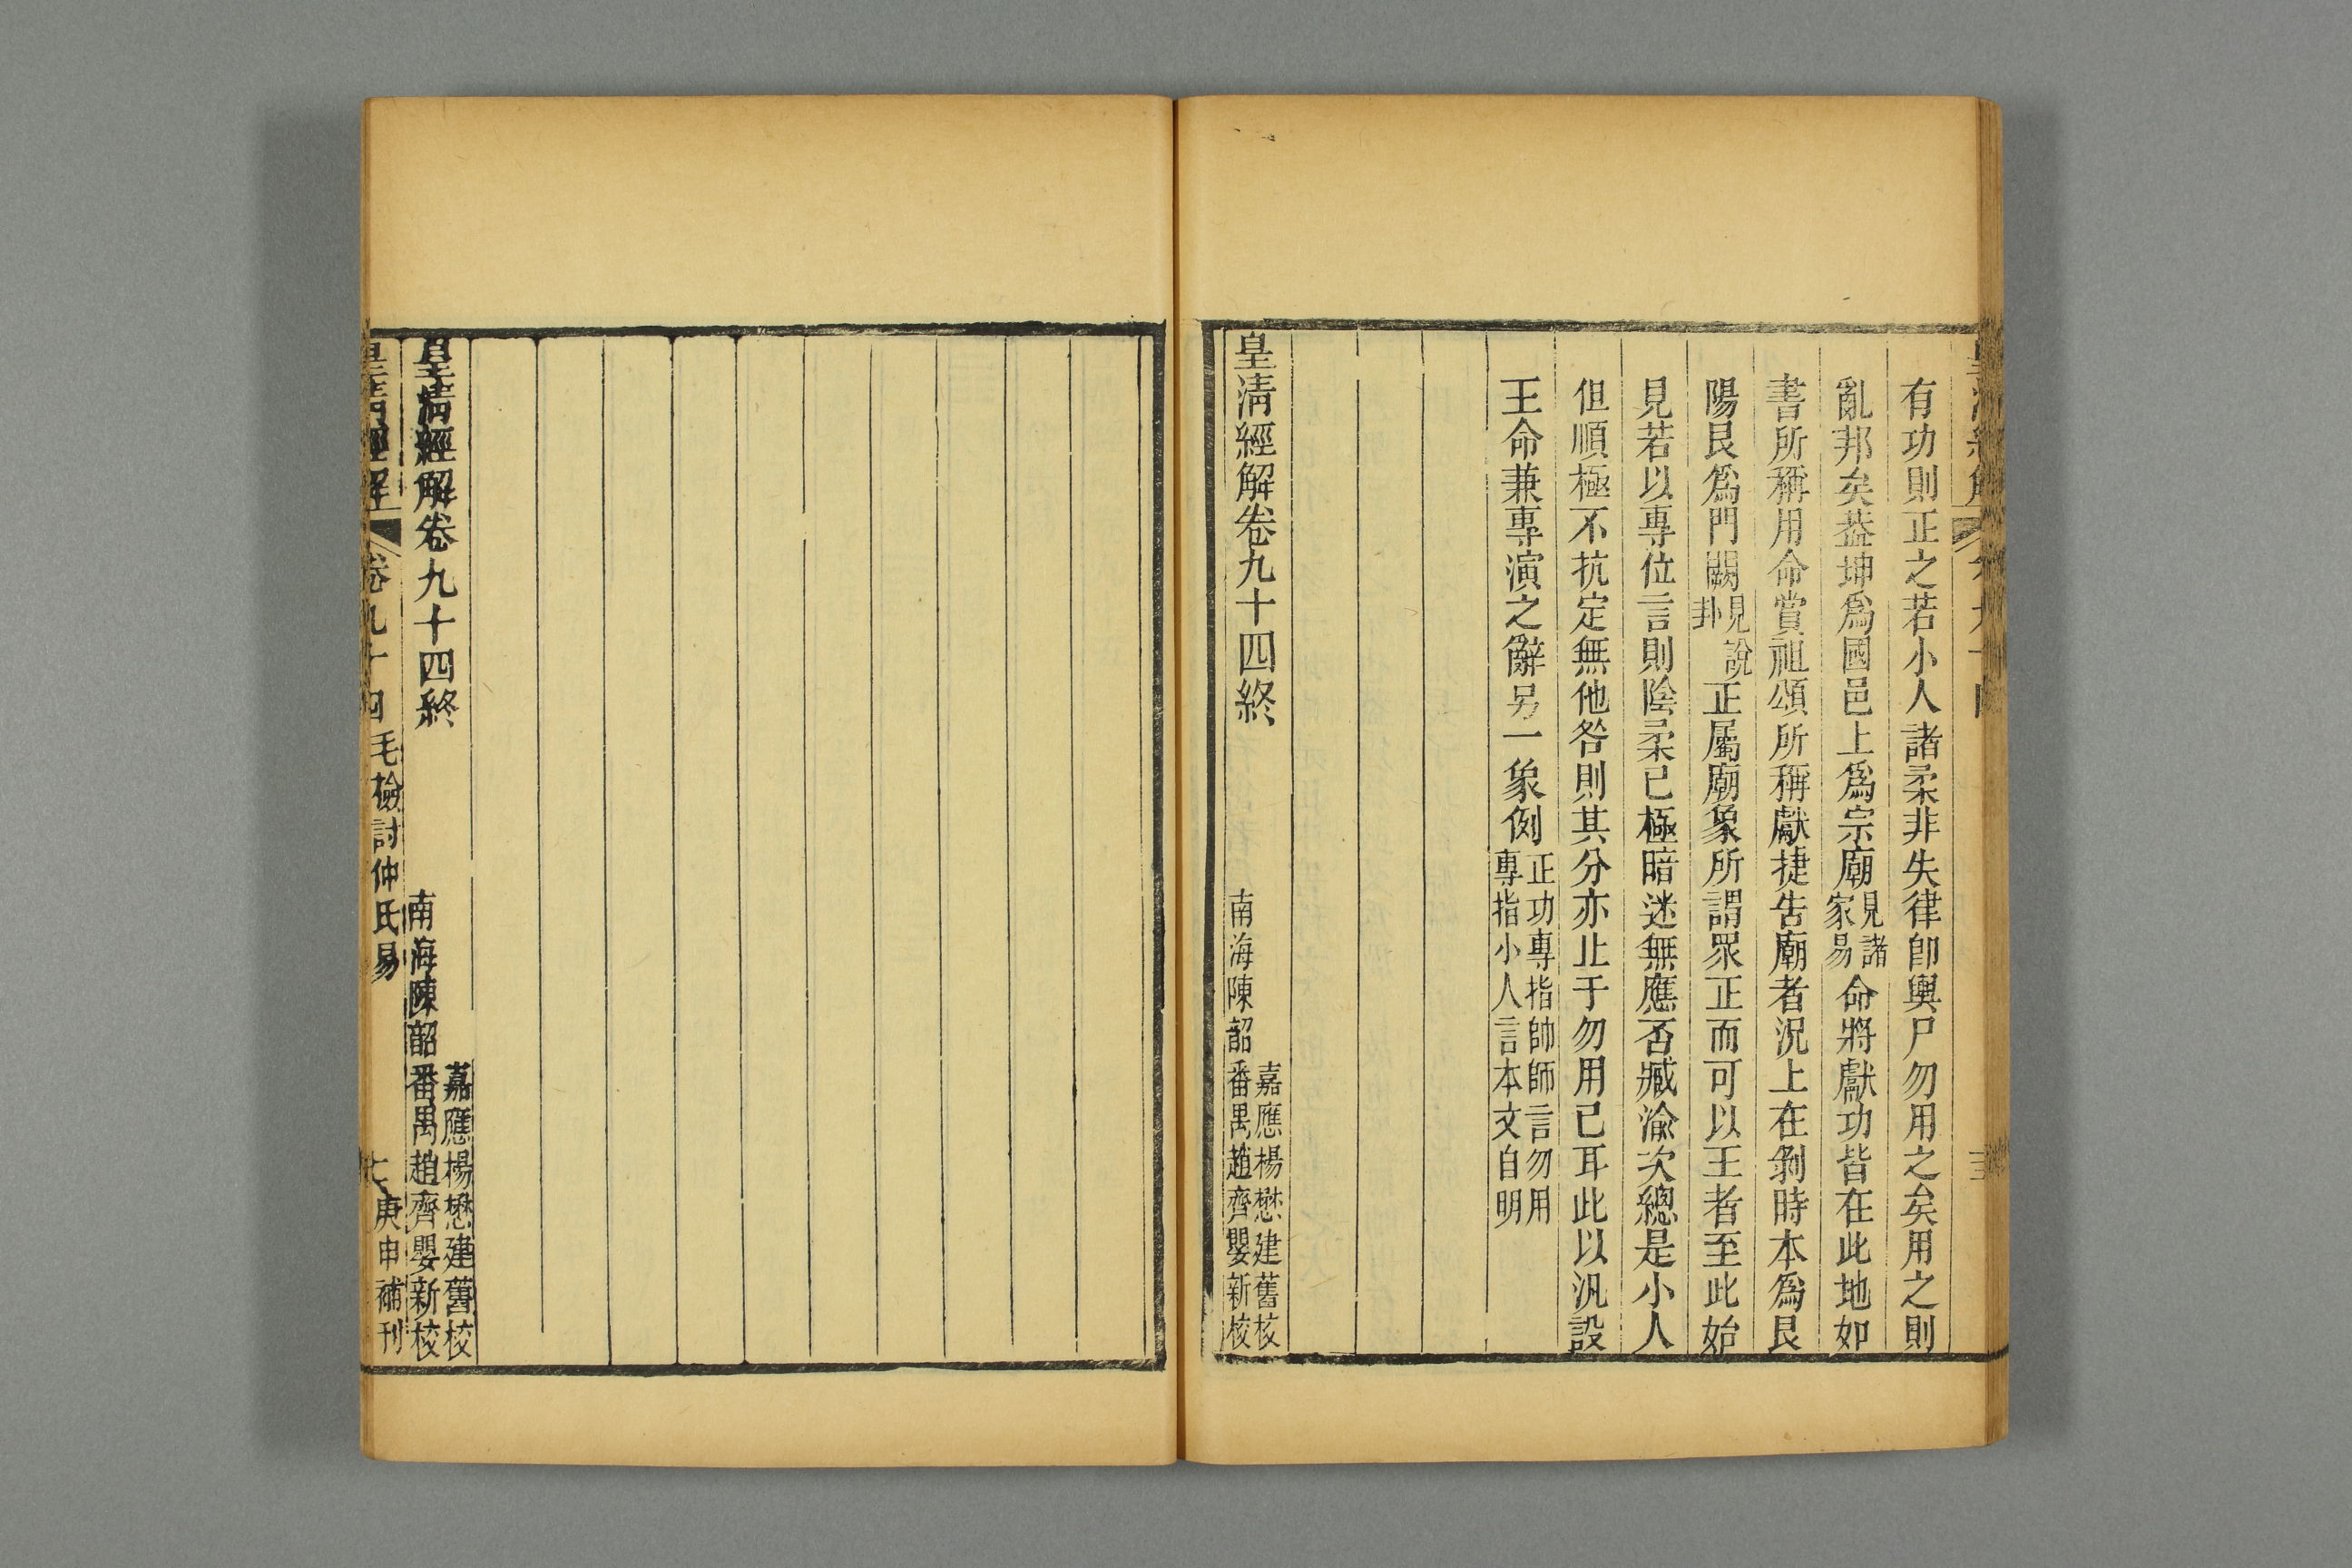 有功則正之若小人諸柔非失律卽輿尸勿用之矣用之則
亂邦矣葢坤爲國邑上爲宗廟見諸家易命將獻功皆在此地如
書所稱用命賞祖頌所稱獻捷告廟者況上在剝時本爲艮
陽艮爲門闕見說卦正屬廟象所謂眾正而可以王者至此始
見若以專位言則陰柔已極暗迷無應否臧淪次總是小人
但順極不抗定無他咎則其分亦止于勿用已耳此以汎設
王命兼專演之辭另一象例正功專指帥師言勿用專指小人言本文自明
皇淸經解卷九十四終
嘉應楊懋建舊校
南海陳韶
番禺趙齊嬰新校
皇淸經解卷九十四終
嘉應楊懋建舊校
南海陳韶
番禺趙齊嬰新校
皇淸經解
卷九十四
毛檢討仲氏易
庚申補刊